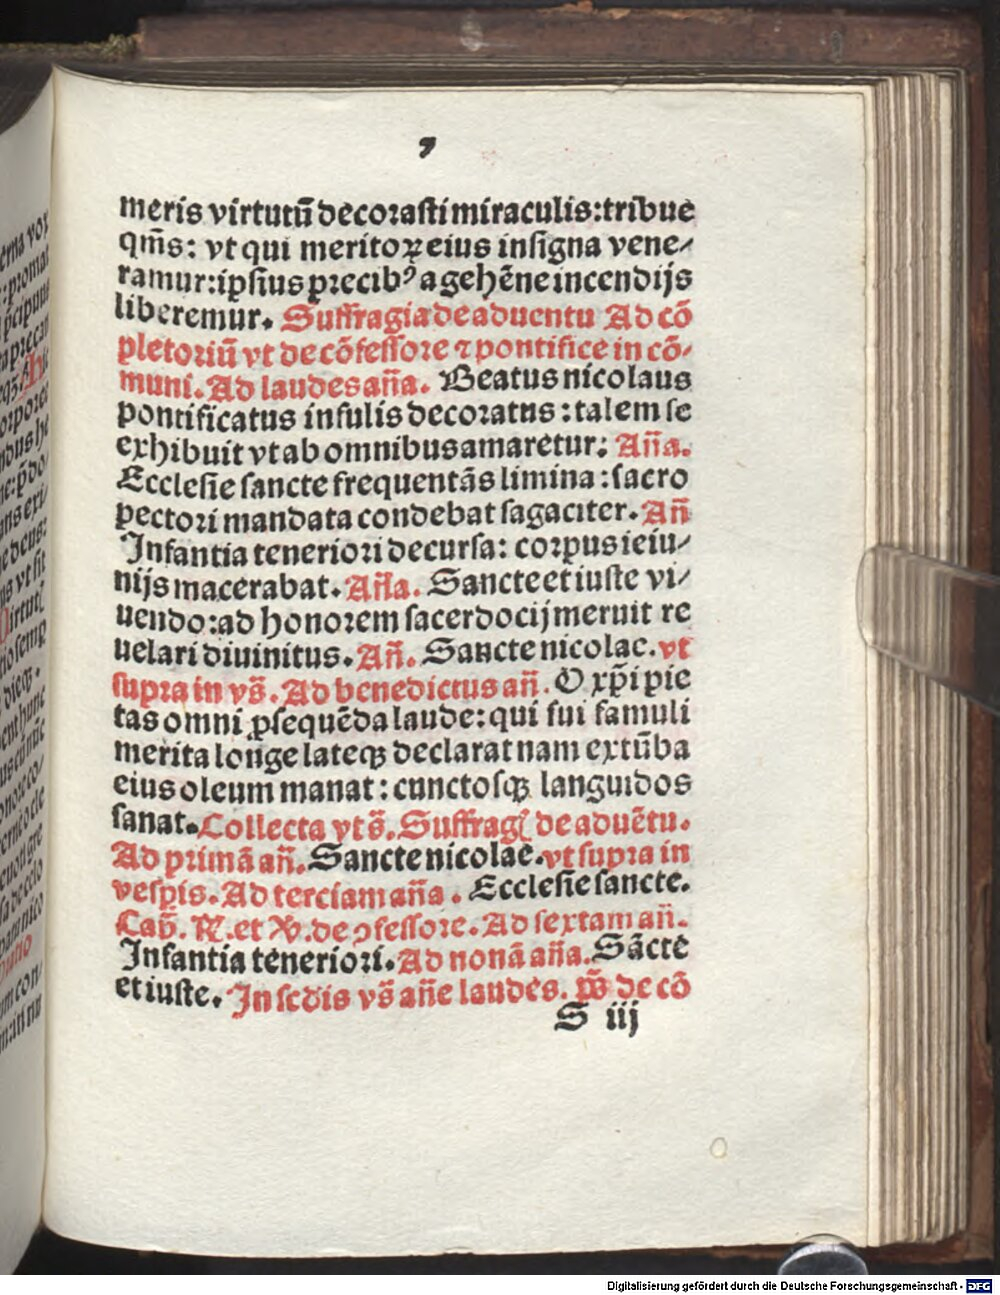 9
meris virtutū decorasti miraculis: tribue
qm̄s: vt qui meritoꝝ eius insigna vene⸗
ramur: ipsius precibꝰ a gehēne incendijs
liberemur. Suffragia de aduentu Ad cō
pletoriū vt de cōfessore ⁊ pontifice in cō⸗
muni. Ad laudes añа. Beatus nicolaus
pontificatus infulis decoratus: talem se
exhibuit vt ab omnibus amaretur: Añа.
Ecclesie sancte frequentās limina: sacro
pectori mandata condebat sagaciter. Añ
Infantia teneriori decursa: corpus ieiu⸗
nijs macerabat. Añа. Sancte et iuste vi⸗
uendo: ad honorem sacerdocij meruit re
uelari diuinitus. Añ. Sancte nicolae. vt
supra in vs̄. Ad benedictus añ. O xp̄i pie
tas omni ꝓsequēda laude: qui sui famuli
merita longe lateqꝫ declarat nam ex tūba
eius oleum manat: cunctosqꝫ languidos
sanat. Collecta vt s̄. Suffrag̃ de aduētu.
Ad primā añ. Sancte nicolae. vt supra in
vesp̄is. Ad terciam añа. Ecclesie sancte.
Cap̄. R̄. et V̄. de ꝯfessore. Ad sextam añ.
Infantia teneriori. Ad nonā añа. Sācte
et iuste. In scd̄is vs̄ añe laudes. ps̄ de cō
S iij
erna vox
Digitalisierung gefördert durch die Deutsche Forschungsgemeinschaft - DFG